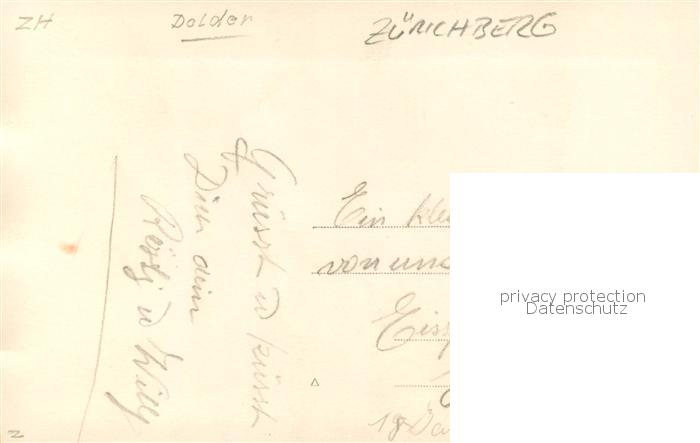 ZH
Dolder
ZÜRICHBERG
Grüsst u küsst
Dich dein
u Willy
Ein
von uns
privacy protection
Datenschutz